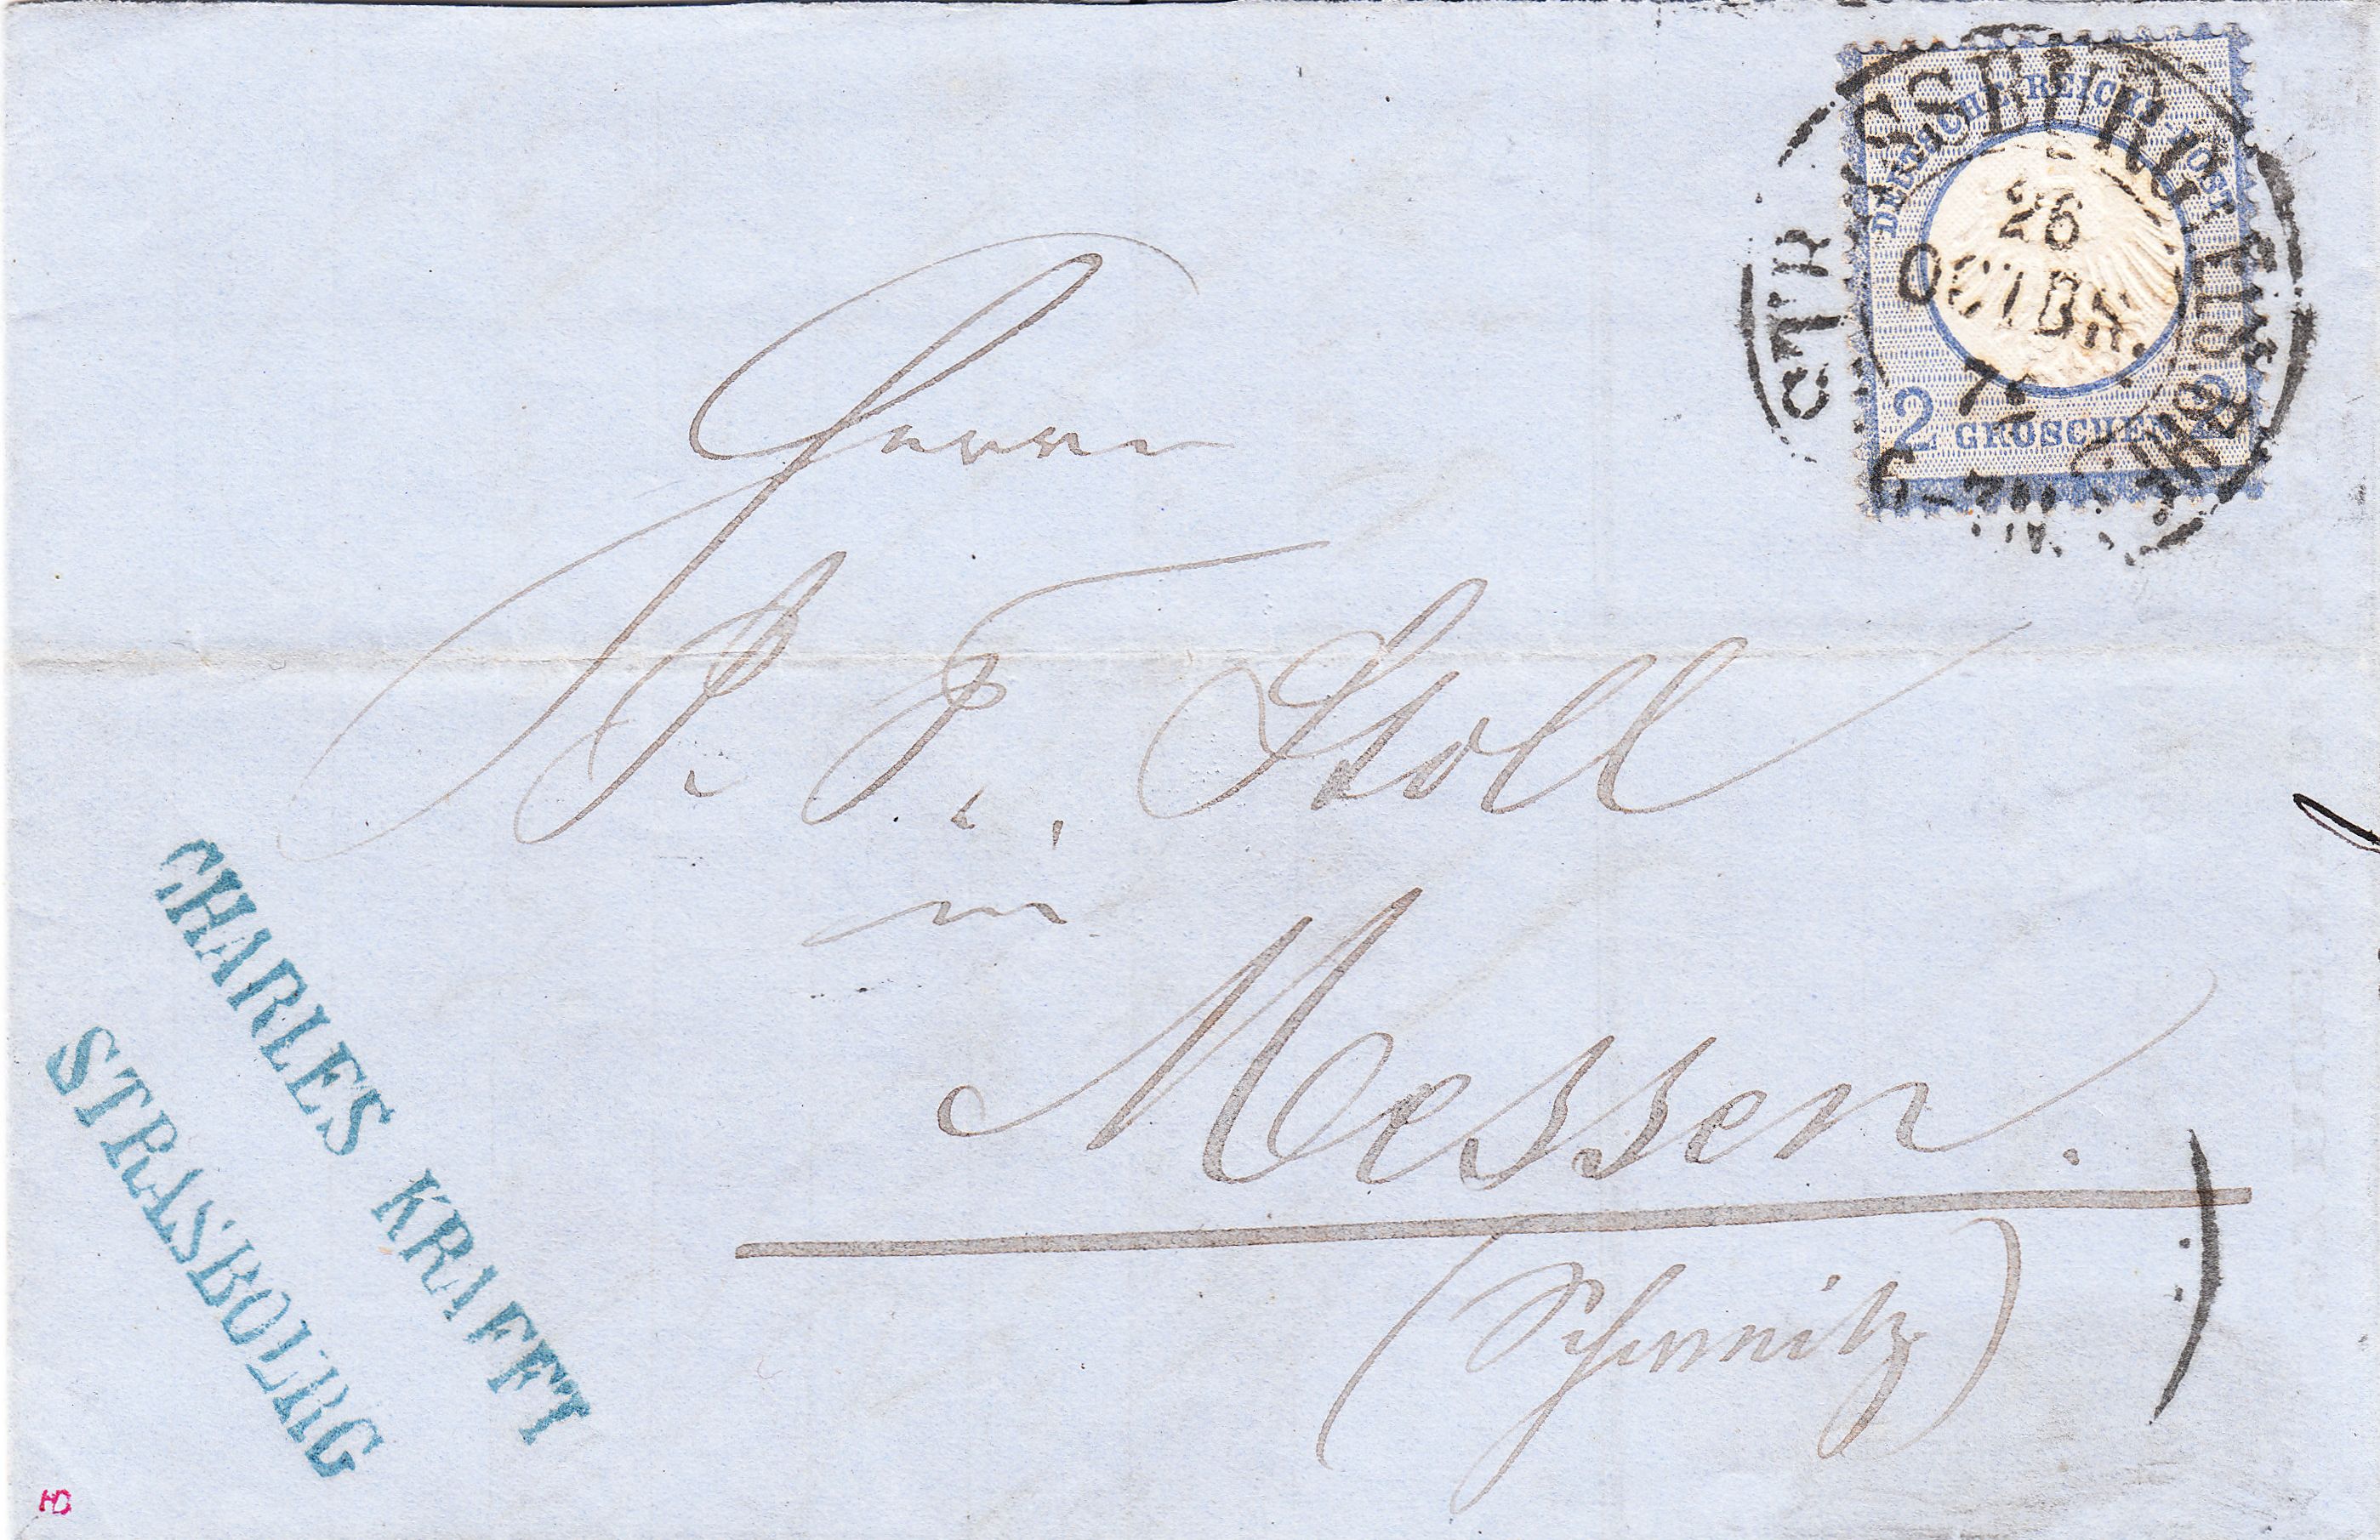 DEUTSCHE REICHS-POST
2 GROSCHEN 2
26
OCTBR.
Herrn
Stoll
in
Messen.
(Schweitz)
CHARLES KRAFFT
STRASBOURG